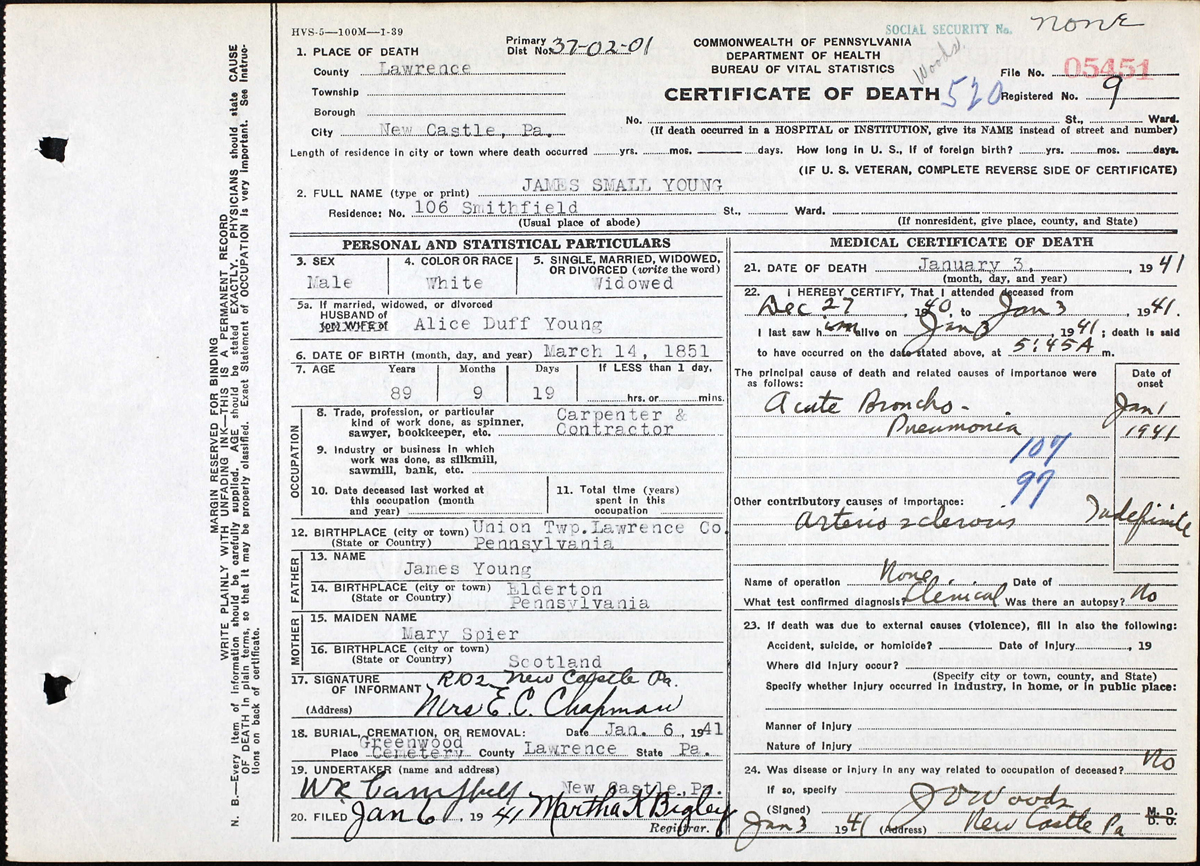 HVS-5—100M—1-39
SOCIAL SECURITY No. none
Primary Dist No. 37-02-01
COMMONWEALTH OF PENNSYLVANIA
DEPARTMENT OF HEALTH
BUREAU OF VITAL STATISTICS
Woods
File No. 05451
CERTIFICATE OF DEATH 520
Registered No. 9
1. PLACE OF DEATH
County Lawrence
Township
Borough
City New Castle, Pa.
No. St., Ward.
(If death occurred in a HOSPITAL or INSTITUTION, give its NAME instead of street and number)
Length of residence in city or town where death occurred yrs. mos. days. How long in U. S., if of foreign birth? yrs. mos. days.
(IF U. S. VETERAN, COMPLETE REVERSE SIDE OF CERTIFICATE)
2. FULL NAME (type or print) JAMES SMALL YOUNG
Residence: No. 106 Smithfield St., Ward.
(Usual place of abode) (If nonresident, give place, county, and State)
PERSONAL AND STATISTICAL PARTICULARS
3. SEX Male
4. COLOR OR RACE White
5. SINGLE, MARRIED, WIDOWED, OR DIVORCED (write the word) Widowed
5a. If married, widowed, or divorced
HUSBAND of Alice Duff Young
(or) WIFE of
6. DATE OF BIRTH (month, day, and year) March 14, 1851
7. AGE Years Months Days If LESS than 1 day,
89 9 19 hrs. or mins.
OCCUPATION
8. Trade, profession, or particular kind of work done, as spinner, sawyer, bookkeeper, etc. Carpenter & Contractor
9. Industry or business in which work was done, as silkmill, sawmill, bank, etc.
10. Date deceased last worked at this occupation (month and year)
11. Total time (years) spent in this occupation
12. BIRTHPLACE (city or town) Union Twp. Lawrence Co.
(State or Country) Pennsylvania
FATHER
13. NAME James Young
14. BIRTHPLACE (city or town) Elderton
(State or Country) Pennsylvania
MOTHER
15. MAIDEN NAME Mary Spier
16. BIRTHPLACE (city or town)
(State or Country) Scotland
17. SIGNATURE OF INFORMANT Mrs E. C. Chapman
(Address) New Castle Pa.
18. BURIAL, CREMATION, OR REMOVAL: Date Jan. 6, 1941
Place Greenwood Cemetery County Lawrence State Pa.
19. UNDERTAKER (name and address)
Campbell New Castle, Pa.
20. FILED Jan 6 1941 Martha K Bigley
Registrar.
MEDICAL CERTIFICATE OF DEATH
21. DATE OF DEATH January 3, , 1941
(month, day, and year)
22. I HEREBY CERTIFY, That I attended deceased from
Dec 27, 1940, to Jan 3, 1941.
I last saw him alive on Jan 3, 1941; death is said
to have occurred on the date stated above, at 5:45A m.
The principal cause of death and related causes of importance were as follows:
Date of onset
Acute Broncho- Jan 1
Pneumonia 1941
107
97
Other contributory causes of importance:
Arterio sclerosis Indefinite
Name of operation None. Date of
What test confirmed diagnosis? Clenical Was there an autopsy? No
23. If death was due to external causes (violence), fill in also the following:
Accident, suicide, or homicide? Date of Injury , 19
Where did Injury occur?
(Specify city or town, county, and State)
Specify whether Injury occurred in industry, in home, or in public place:
Manner of Injury
Nature of Injury
24. Was disease or injury in any way related to occupation of deceased? No
If so, specify
(Signed) J D Woods M. D.
D. O.
Jan 3 1941 (Address) New Castle Pa
MARGIN RESERVED FOR BINDING
WRITE PLAINLY WITH UNFADING INK—THIS IS A PERMANENT RECORD
N. B.—Every item of information should be carefully supplied. AGE should be stated EXACTLY. PHYSICIANS should state CAUSE
OF DEATH in plain terms, so that it may be properly classified. Exact Statement of OCCUPATION is very important. See Instruc-
tions on back of certificate.